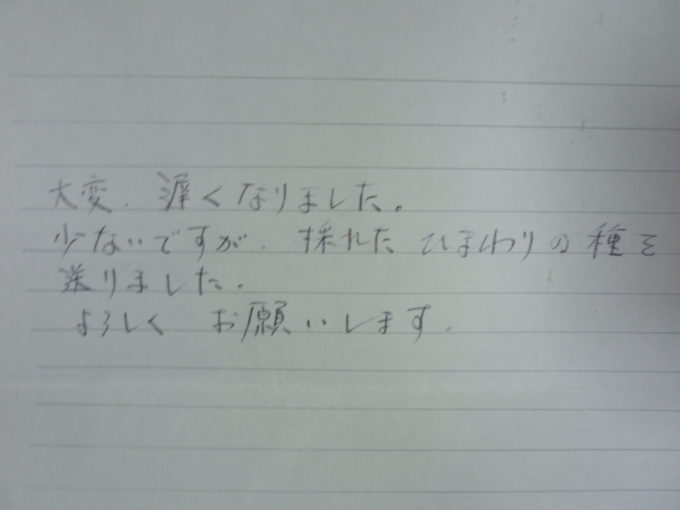 大変、遅くなりました。
少ないですが、採れたひまわりの種を
送りました。
よろしく お願いします。